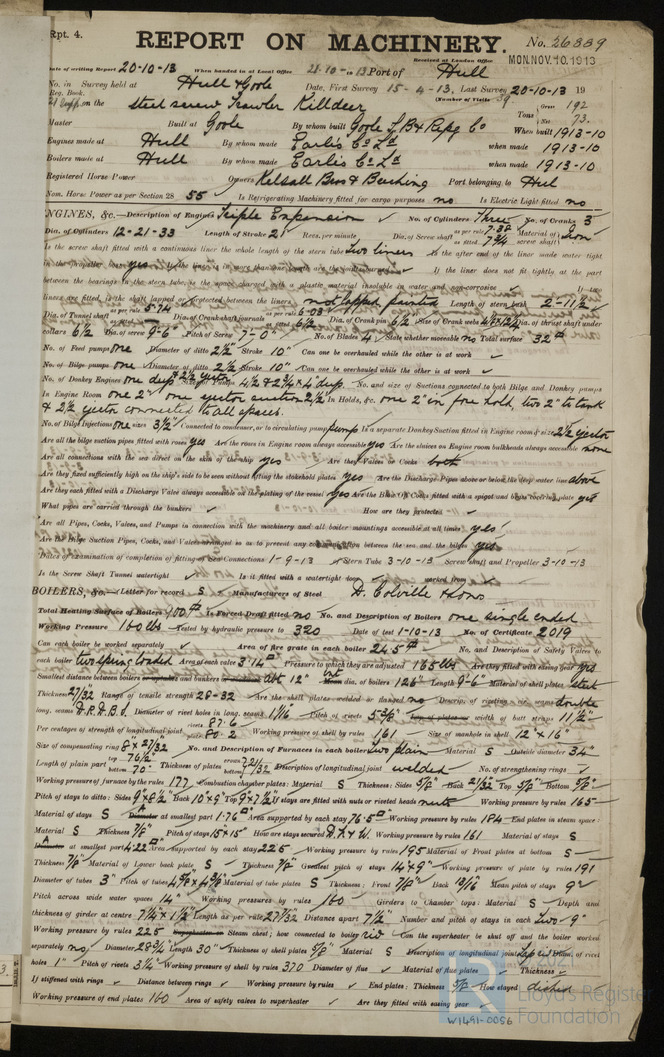 Rpt. 4.
REPORT ON MACHINERY. No. 26889
Received at London Office MON. NOV. 10. 1913
Date of writing Report 20-10-13 When handed in at Local Office 21-10-13 Port of Hull
No. in Survey held at Hull & Goole Date, First Survey 15-4-13, Last Survey 20-10-13 19
Reg. Book. (Number of Visits 39
on the steel screw Trawler Killdeer Tons Gross 192 Net 73.
Master Built at Goole By whom built Goole S. B & Repg Co When built 1913-10
Engines made at Hull By whom made Earle's Co Ld when made 1913-10
Boilers made at Hull By whom made Earle's Co Ld when made 1913-10
Registered Horse Power Owners Kelsall Bros & Beeching Port belonging to Hull
Nom. Horse Power as per Section 28 55 Is Refrigerating Machinery fitted for cargo purposes no Is Electric Light fitted no
ENGINES, &c.—Description of Engines Triple Expansion No. of Cylinders Three No. of Cranks 3
Dia. of Cylinders 12-21-33 Length of Stroke 21 Revs. per minute Dia. of Screw shaft as per rule 7.38 as fitted 7 3/4 Material of screw shaft Iron
Is the screw shaft fitted with a continuous liner the whole length of the stern tube Two liners Is the after end of the liner made water tight
in the propeller boss yes If the liner does not fit tightly at the part
between the bearings in the stern tube, is the space charged with a plastic material insoluble in water and non-corrosive If two
liners are fitted, is the shaft lapped or protected between the liners not lapped painted Length of stern bush 2-11½
Dia. of Tunnel shaft as per rule 5.74 Dia. of Crank shaft journals as per rule 6.03 as fitted 6½ Dia. of Crank pin 6½ Size of Crank webs Dia. of thrust shaft under
collars 6½ Dia. of screw 9-6 Pitch of Screw 7-0 No. of Blades 4 State whether moveable no Total surface 32
No. of Feed pumps one Diameter of ditto 2½ Stroke 10" Can one be overhauled while the other is at work
No. of Bilge pumps one Diameter of ditto 2½ Stroke 10" Can one be overhauled while the other is at work
No. of Donkey Engines one dup & 2½ ejector Sizes of Pumps 4½ & 2¾ x 4" dup. No. and size of Suctions connected to both Bilge and Donkey pumps
In Engine Room one 2" one ejector suction 2½ In Holds, &c. one 2" in fore hold, two 2" to tank
& 2½ ejector connected to all spaces.
No. of Bilge Injections one sizes 3½ Connected to condenser, or to circulating pump pump Is a separate Donkey Suction fitted in Engine room & size 2½ ejector
Are all the bilge suction pipes fitted with roses yes Are the roses in Engine room always accessible yes Are the sluices on Engine room bulkheads always accessible none
Are all connections with the sea direct on the skin of the ship yes Are they Valves or Cocks both
Are they fixed sufficiently high on the ship's side to be seen without lifting the stokehold plates yes Are the Discharge Pipes above or below the deep water line above
Are they each fitted with a Discharge Valve always accessible on the plating of the vessel yes Are the Blow Off Cocks fitted with a spigot and brass covering plate yes
What pipes are carried through the bunkers How are they protected
Are all Pipes, Cocks, Valves, and Pumps in connection with the machinery and all boiler mountings accessible at all times yes
Are the Bilge Suction Pipes, Cocks, and Valves arranged so as to prevent any communication between the sea and the bilges yes
Dates of examination of completion of fitting of Sea Connections 1-9-13 of Stern Tube 3-10-13 Screw shaft and Propeller 3-10-13
Is the Screw Shaft Tunnel watertight Is it fitted with a watertight door worked from
BOILERS, &c.—Letter for record S Manufacturers of Steel D. Colville & Sons
Total Heating Surface of Boilers 900 Is Forced Draft fitted no No. and Description of Boilers one single ended
Working Pressure 160 lbs Tested by hydraulic pressure to 320 Date of test 1-10-13 No. of Certificate 2019
Can each boiler be worked separately Area of fire grate in each boiler 24.5 No. and Description of Safety Valves to
each boiler two spring loaded Area of each valve 3.14 Pressure to which they are adjusted 165 lbs Are they fitted with easing gear yes
Smallest distance between boilers or uptakes and bunkers abt 12" Int dia. of boilers 126" Length 9-6" Material of shell plates steel
Thickness 27/32 Range of tensile strength 28-32 Are the shell plates welded or flanged no Descrip. of riveting: cir. seams double
long. seams Diameter of rivet holes in long. seams 1 1/16 Pitch of rivets 5 3/8 width of butt straps 11½
Per centages of strength of longitudinal joint rivets 87.6 plate 80.2 Working pressure of shell by rules 161 Size of manhole in shell 12" x 16"
Size of compensating ring 8" x 27/32 No. and Description of Furnaces in each boiler two plain Material S Outside diameter 34"
Length of plain part top 76½ bottom 70 Thickness of plates Description of longitudinal joint welded No. of strengthening rings
Working pressure of furnace by the rules 177 Combustion chamber plates: Material S Thickness: Sides 5/8 Back 21/32 Top 5/8 Bottom 5/8
Pitch of stays to ditto: Sides 9 x 8½ Back 10 x 9 Top 9 x 7½ If stays are fitted with nuts or riveted heads nuts Working pressure by rules 165
Material of stays S at smallest part 1.76 Area supported by each stay 76.5 Working pressure by rules 184 End plates in steam space:
Material S Thickness 7/8 Pitch of stays 15 x 15 How are stays secured D.N. & W. Working pressure by rules 161 Material of stays S
at smallest part 4.22 Area supported by each stay 225 Working pressure by rules 195 Material of Front plates at bottom S
Thickness 7/8 Material of Lower back plate S Thickness 7/8 Greatest pitch of stays 14 x 9 Working pressure of plate by rules 191
Diameter of tubes 3" Pitch of tubes Material of tube plates S Thickness: Front 7/8 Back 13/16 Mean pitch of stays 9
Pitch across wide water spaces 14" Working pressures by rules 160 Girders to Chamber tops: Material S Depth and
thickness of girder at centre 7¼ x 1½ Length as per rule 27 7/32 Distance apart 7½ Number and pitch of stays in each two 9"
Working pressure by rules 225 Steam chest; how connected to boiler riv Can the superheater be shut off and the boiler worked
separately no Diameter 28¾ Length 30" Thickness of shell plates 5/8 Material S Description of longitudinal joint lap riv Diam. of rivet
holes 1" Pitch of rivets 3¼ Working pressure of shell by rules 370 Diameter of flue Material of flue plates Thickness
If stiffened with rings Distance between rings Working pressure by rules End plates: Thickness 5/8 How stayed dished
Working pressure of end plates 160 Area of safety valves to superheater Are they fitted with easing gear
© 2021
Lloyd's Register
Foundation
W1491-0056